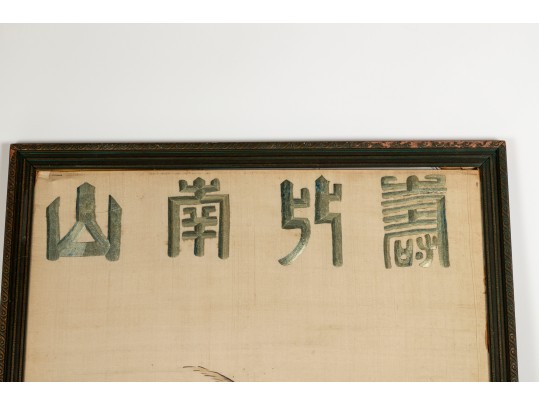 壽比南山